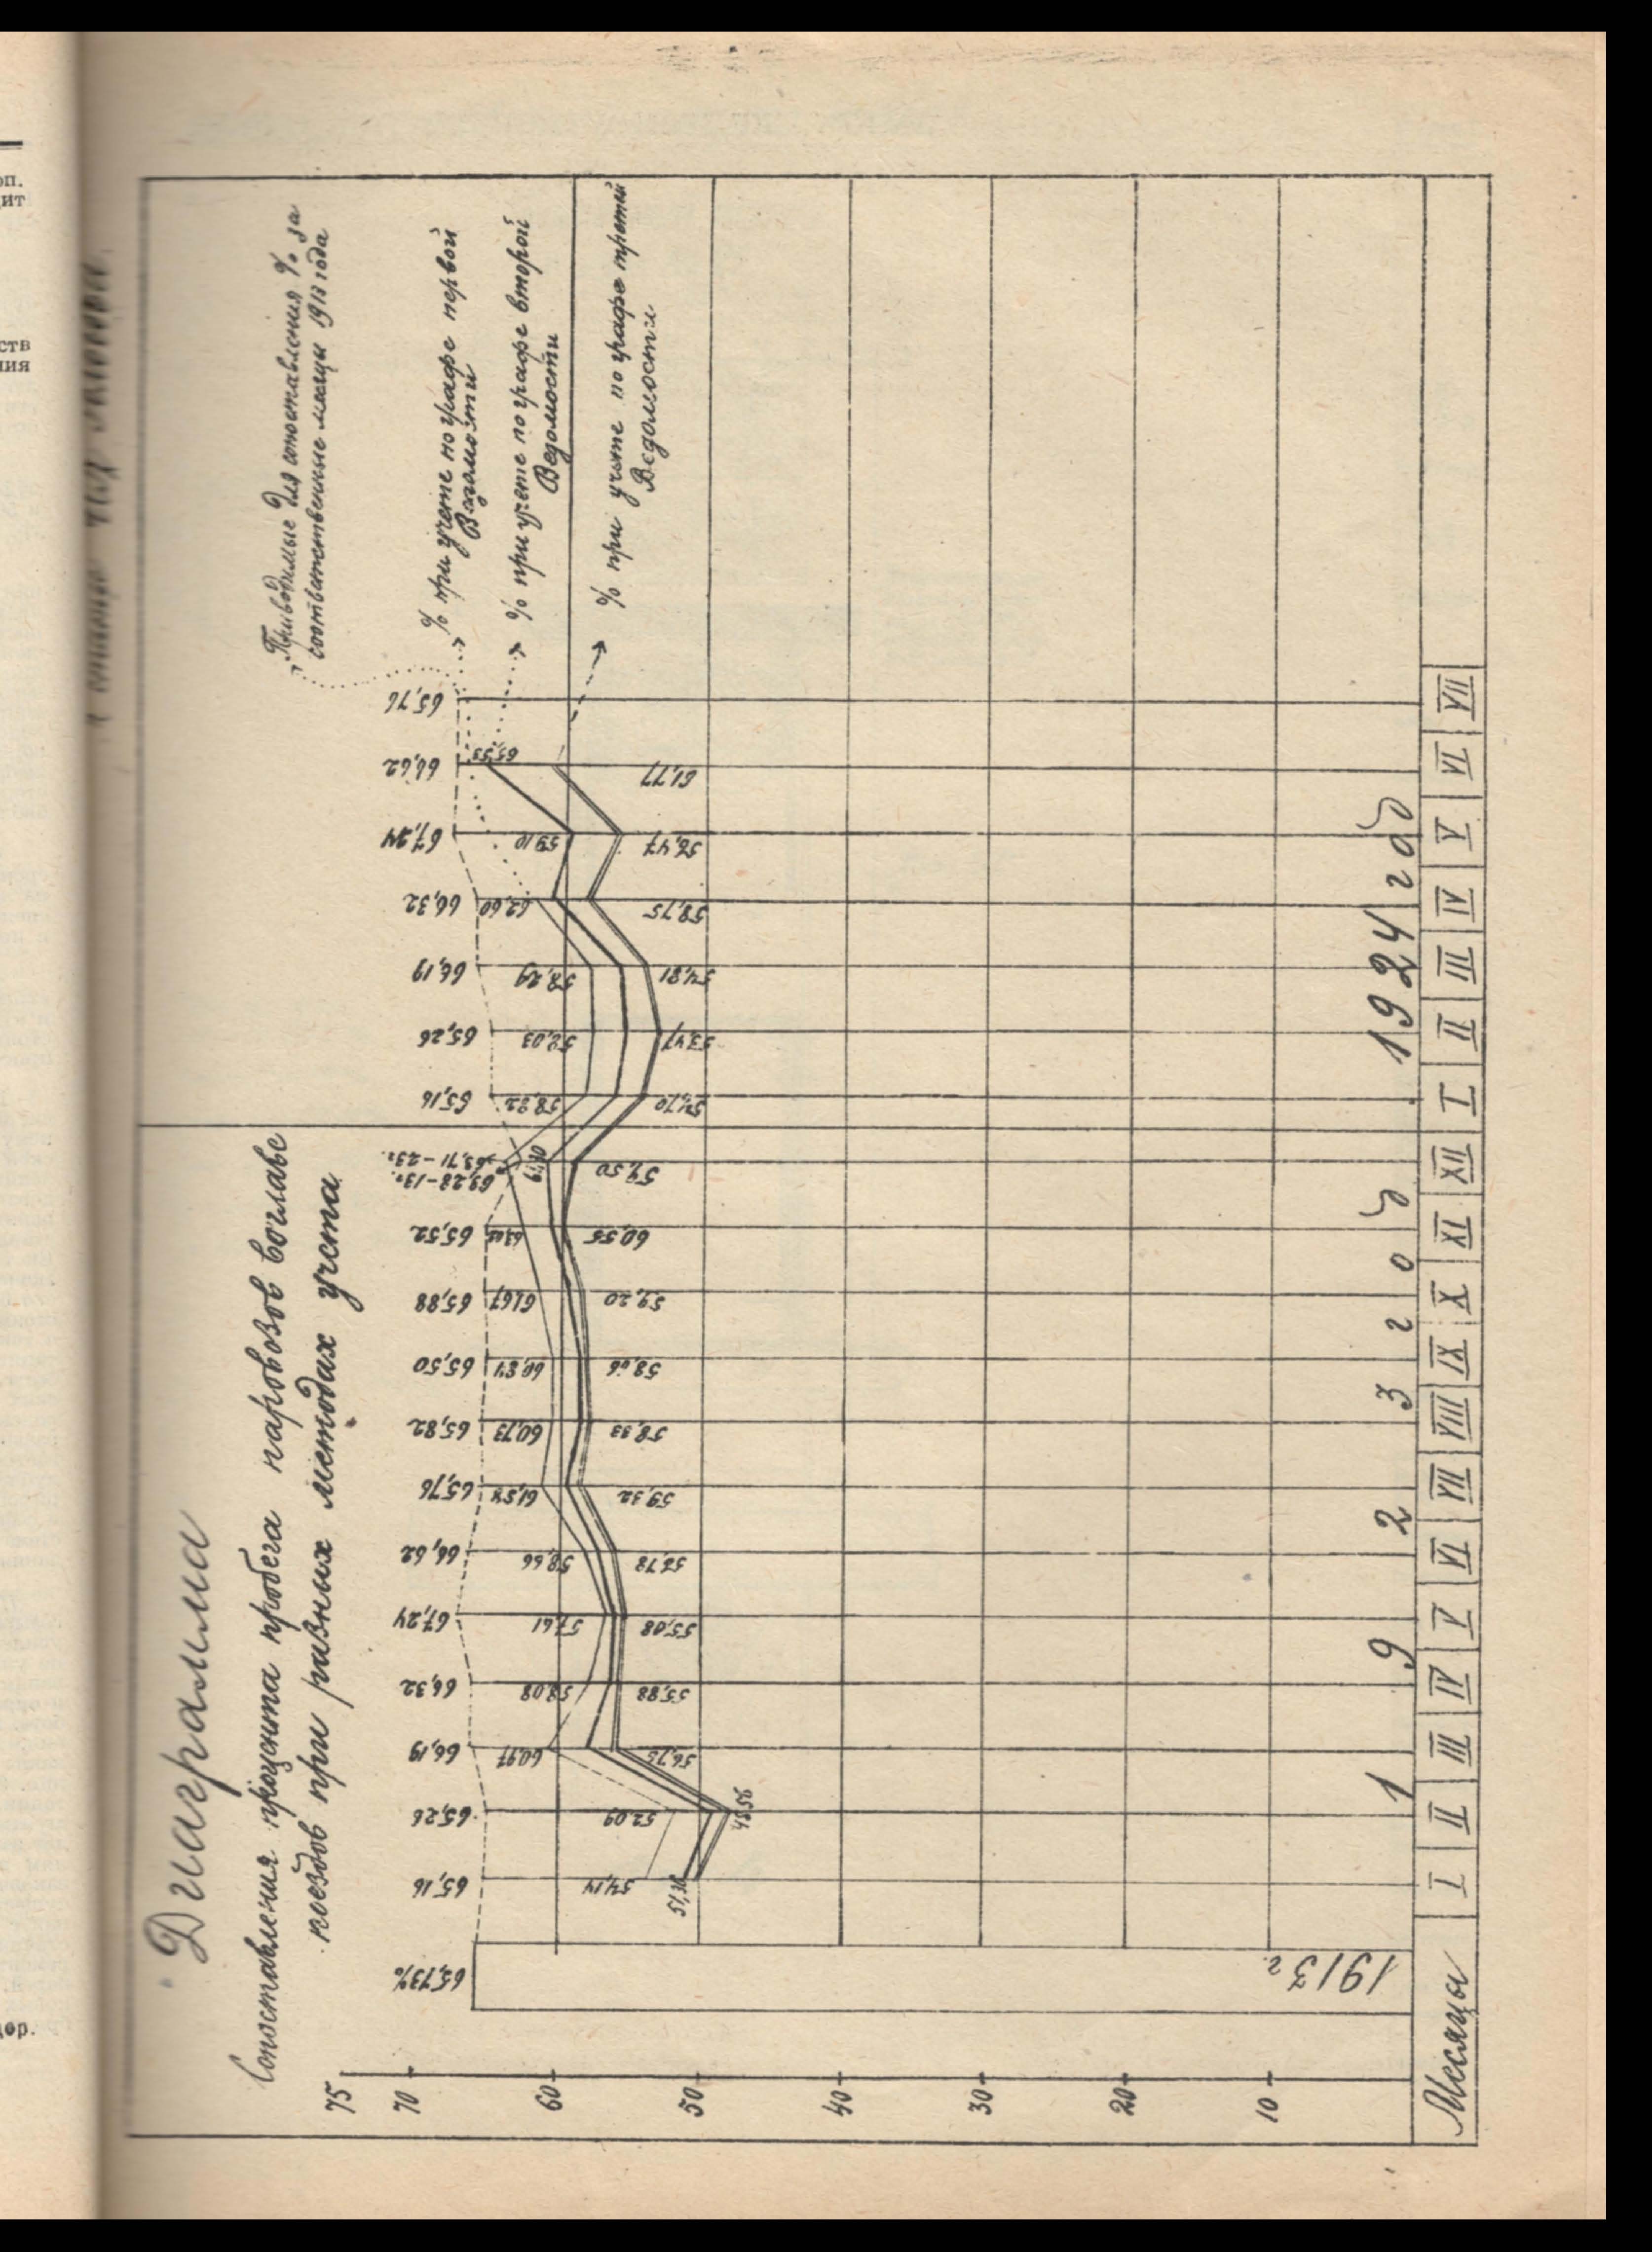 Диаграмма
Сопоставления процента пробега паровозов во главе
поездов при разных методах учета
Приводимые для сопоставления % за
соответственные месяцы 1913 года
% при учете по графе первой
Ведомости
% при учете по графе второй
Ведомости
% при учете по графе третей
Ведомости
75
70
60
50
40
30
20
10
65,73%
65,16
65,26
66,19
66,32
67,24
66,62
65,76
65,82
65,50
65,88
65,52
65,28-13г.
63,71-23г.
65,16
65,26
66,19
66,32
67,24
66,62
65,76
54,14
52,09
60,97
58,08
57,61
58,66
61,54
60,73
60,84
61,67
58,22
58,03
58,29
62,60
59,10
65,53
48,56
56,75
55,88
55,08
59,32
58,33
58,66
59,20
60,55
59,50
54,70
53,47
54,81
58,75
56,47
61,77
1913 г.
1 9 2 3 г о д
1924 год
Месяцы
I II III IV V VI VII VIII IX X XI XII I II III IV V VI VII
оп.
дит
ств
ния
дор.